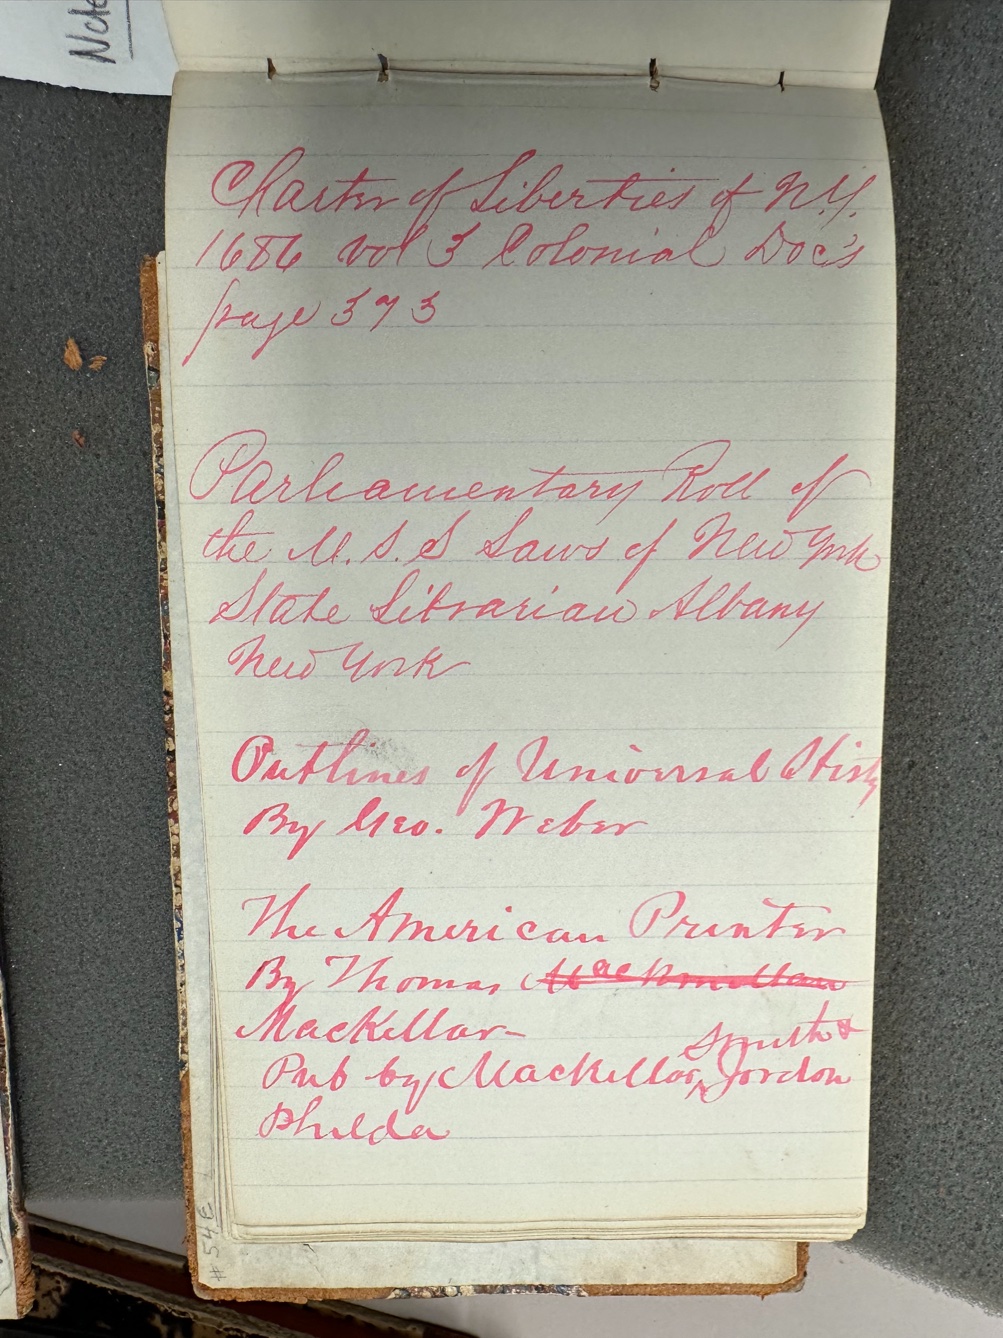 Note
Charter of Liberties of N.Y.
1686 vol 3 Colonial Doc's
page 373
Parliamentary Roll of
the M.S.S Laws of New York
State Librarian Albany
New York
Outlines of Universal Histy
By Geo. Weber
The American Printer
By Thomas Mackmellan
MacKellar-
Smith &
Pub by MacKellar, Jordon
Philda
#54E